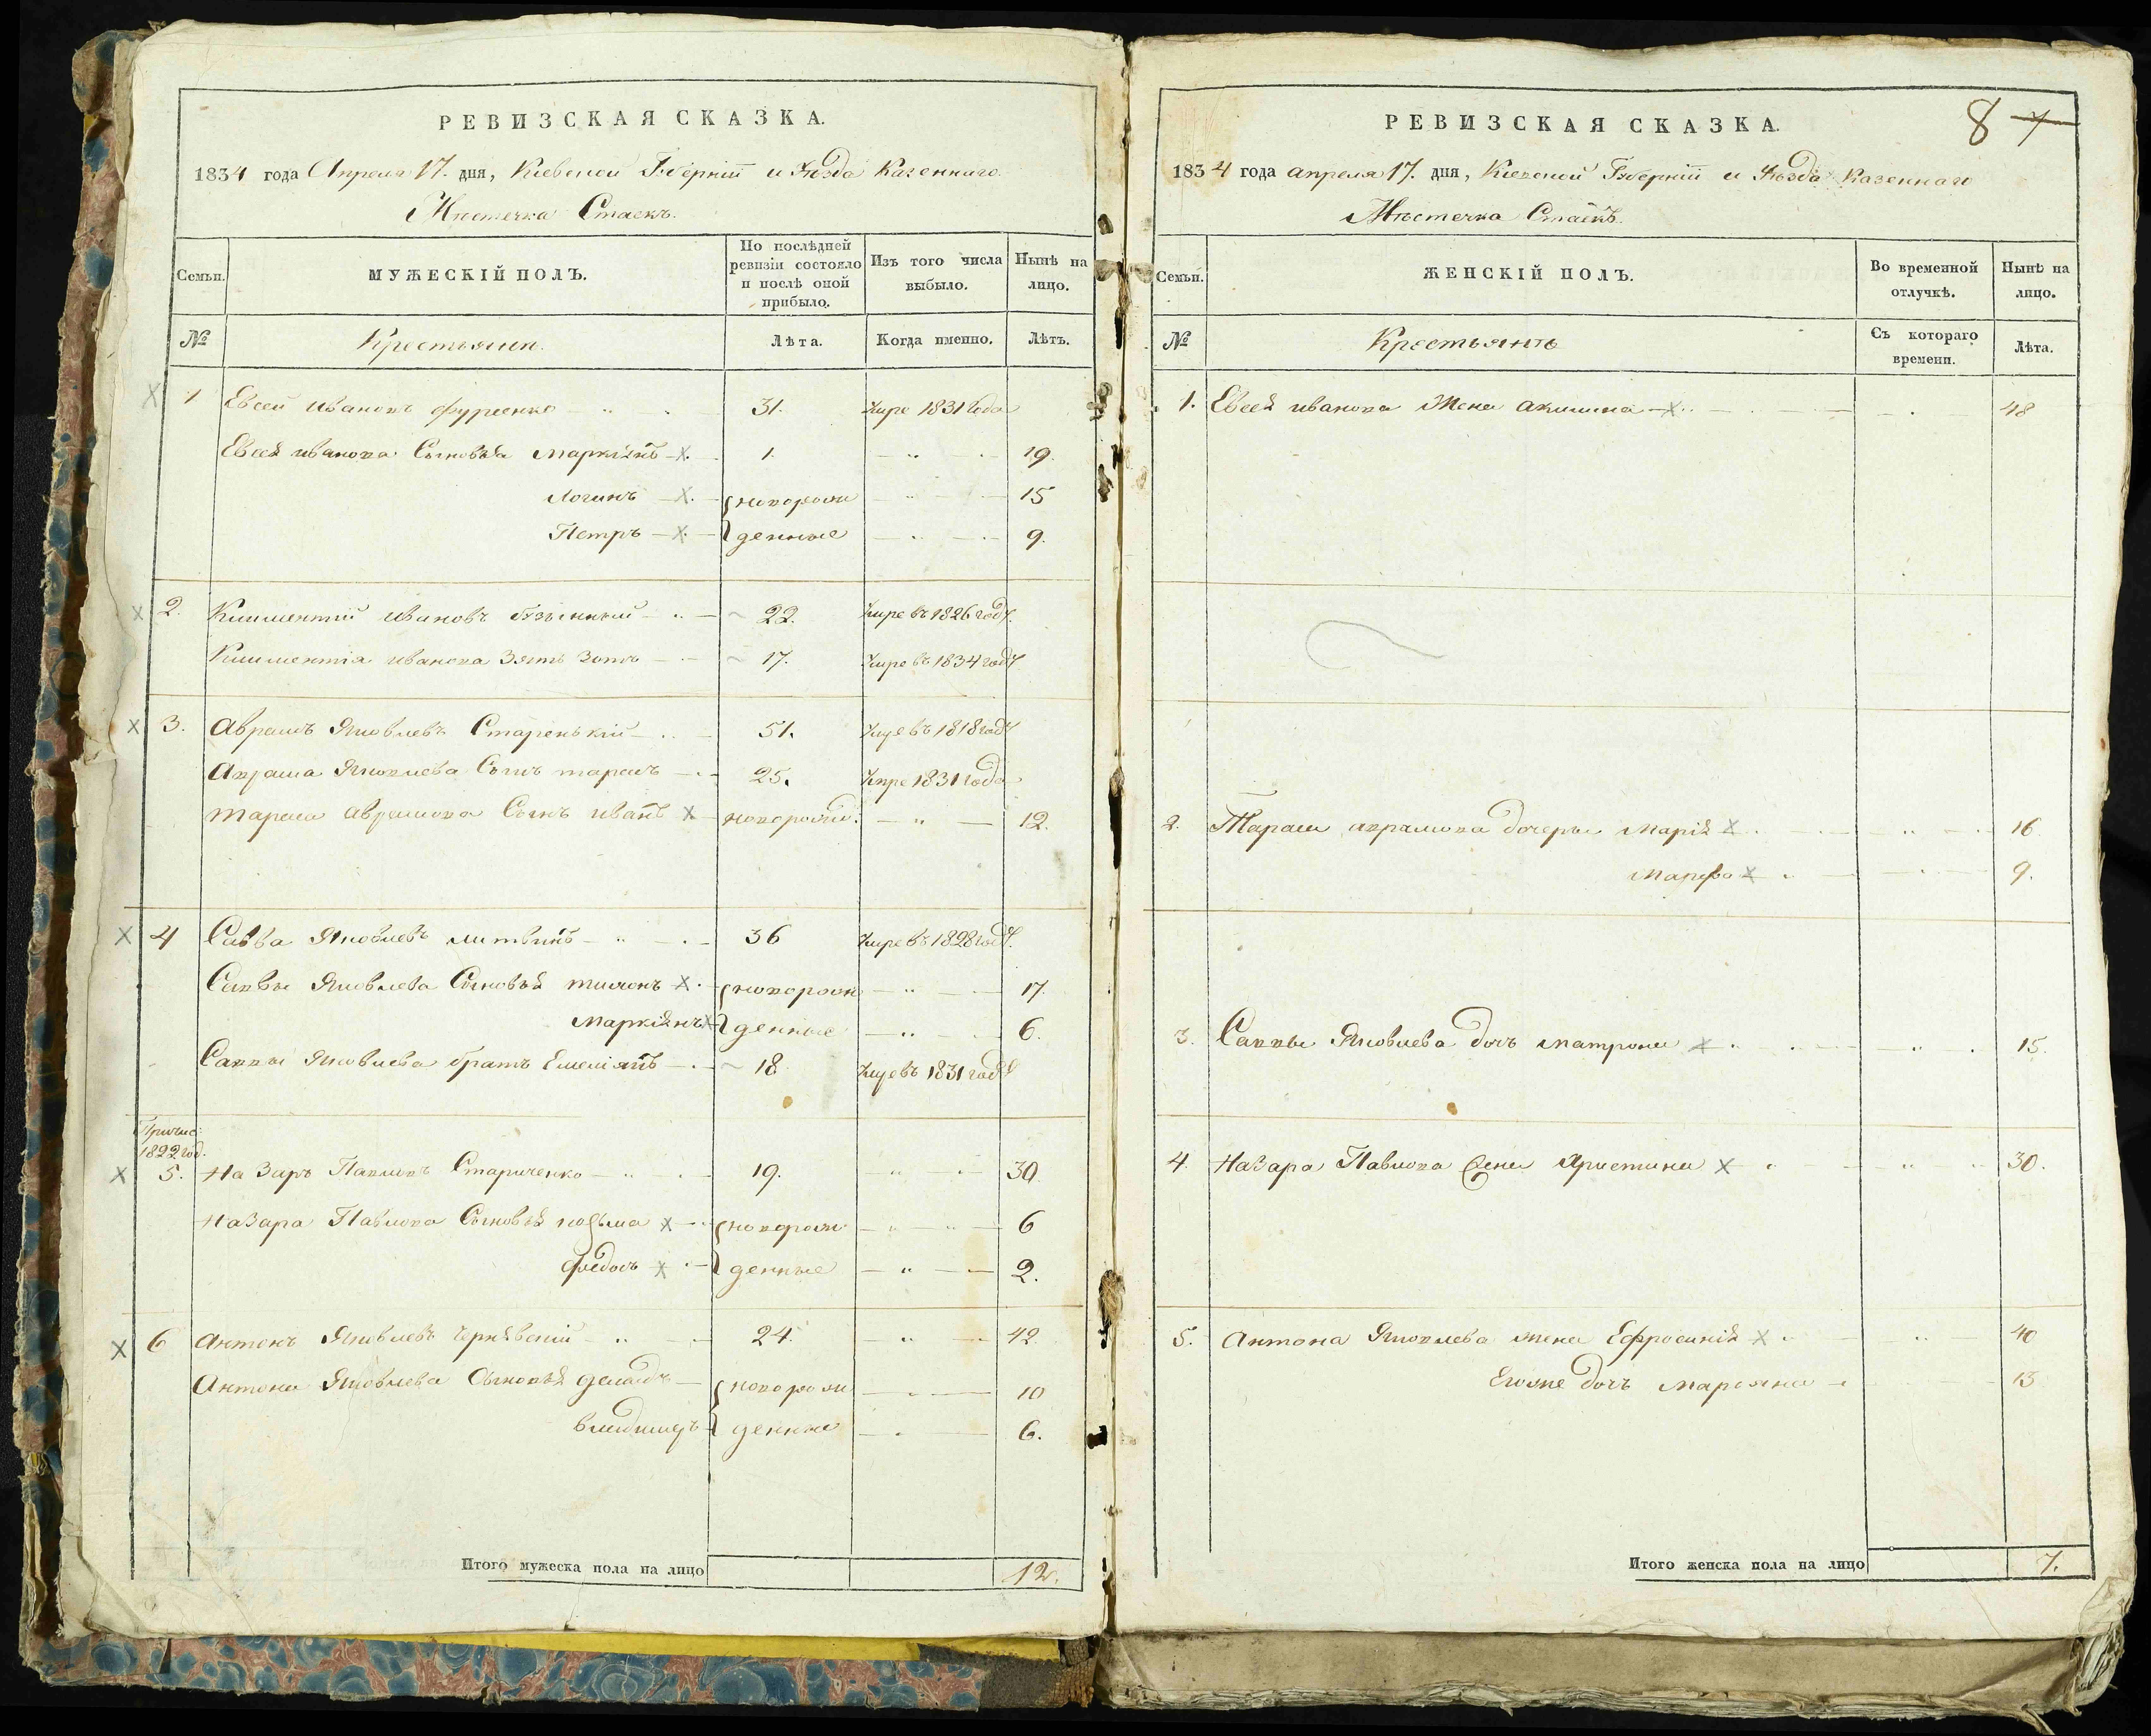 РЕВИЗСКАЯ СКАЗКА.
1834 года Апреля 17. дня, Кіевской Губерніи и Уѣзда Казеннаго
Мѣстечка Стаекъ.
Семьи.
МУЖЕСКІЙ ПОЛЪ.
По послѣдней ревизіи состояло и послѣ оной прибыло.
Изъ того числа выбыло.
Нынѣ на лицо.
№
Крестьянъ
Лѣта.
Когда именно.
Лѣтъ.
1 Евсей Ивановъ Фурсенко 31. Умре 1831 Года
Евсея иванова Сыновья Маркіянъ 1. 19.
Логинъ новорож 15
Петръ денные 9.
2. Климентій Ивановъ 22. Умре въ 1826 году.
Климентія иванова Зять Зотъ 17. Умре въ 1834 году
3. Аврамъ Яковлевъ Старенькій 51. Умре въ 1818 году
Аврама Яковлева Сынъ тарасъ 25. Умре 1831 Года
тараса Аврамова Сынъ иванъ новорожд. 12.
4 Савва Яковлевъ литвинъ 36 Умре въ 1828 году.
Саввы Яковлева Сыновья тимонъ новорож 17.
Маркіянъ денные 6.
Саввы Яковлева братъ Емеліянъ 18 Умре въ 1831 году
Причис:
1822 год.
5. Назаръ Павловъ Стариченко 19. 30.
Назара Павлова Сыновья козьма новорож 6
федосъ денные 2.
6 Антонъ Яковлевъ Чернявскій 24. 42.
Антона Яковлева Сыновья новорож 10
владимеръ денные 6.
Итого мужеска пола на лицо 12.
8 7
РЕВИЗСКАЯ СКАЗКА.
1834 года апреля 17. дня, Кіевской Губерніи и Уѣзда Казеннаго
Мѣстечка Стаекъ.
Семьи.
ЖЕНСКІЙ ПОЛЪ.
Во временной отлучкѣ.
Нынѣ на лицо.
№
Крестьянъ
Съ котораго времени.
Лѣта.
1. Евсея иванова Жена акилина 48
2. Тараса аврамова дочеры Марія 16
Марфа 9.
3. Саввы Яковлева дочь Матрона 15.
4. Назара Павлова Жена Христина 30.
5. Антона Яковлева жена Ефросинія 40
Егоже дочь Маріяна 13
Итого женска пола на лицо 7.